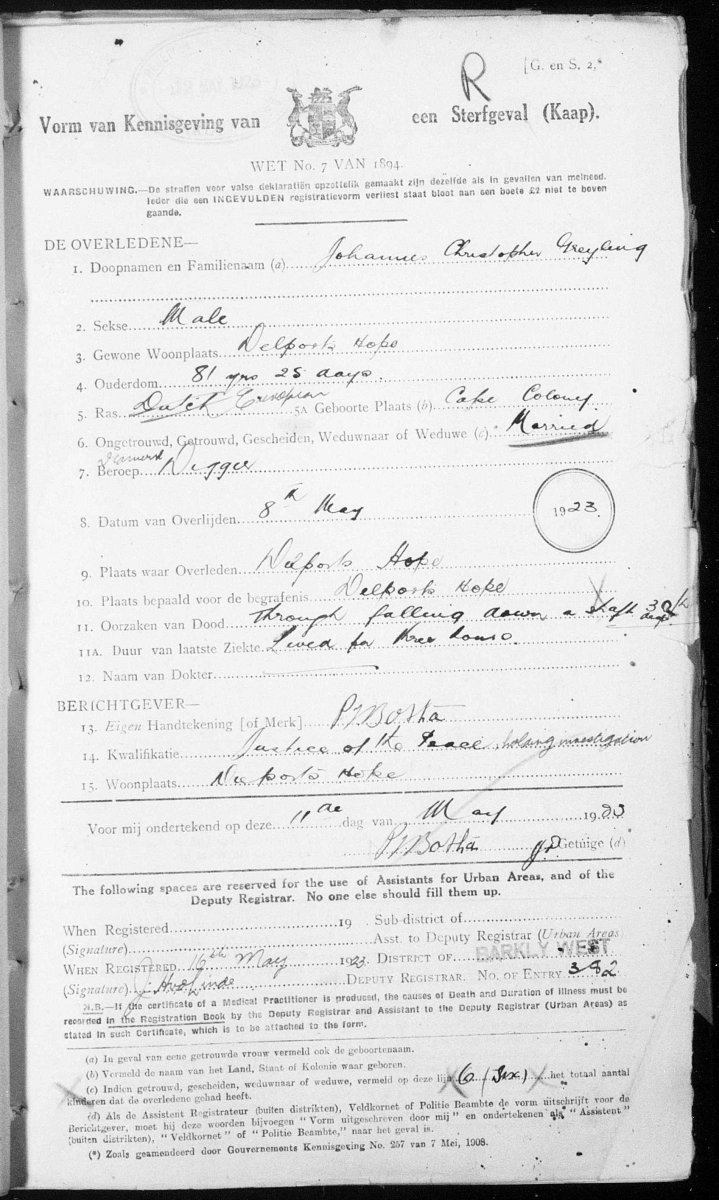 R
[G. en S. 2,*
Vorm van Kennisgeving van een Sterfgeval (Kaap).
WET No. 7 VAN 1894.
WAARSCHUWING.—De straffen voor valse deklaratiën opzettelik gemaakt zijn dezelfde als in gevallen van meineed.
Ieder die een INGEVULDEN registratievorm verliest staat bloot aan een boete £2 niet te boven
gaande.
DE OVERLEDENE—
1. Doopnamen en Familienaam (a) Johannes Christopher Greyling
2. Sekse Male
3. Gewone Woonplaats Delports Hope
4. Ouderdom 81 yrs 25 days.
5. Ras Dutch European 5A Geboorte Plaats (b) Cape Colony
6. Ongetrouwd, Getrouwd, Gescheiden, Weduwnaar of Weduwe (c) Married
7. Beroep Digger
8. Datum van Overlijden 8th May 1923
9. Plaats waar Overleden Delports Hope
10. Plaats bepaald voor de begrafenis Delports Hope
11. Oorzaken van Dood through falling down a shaft 30 ft deep
11A. Duur van laatste Ziekte Lived for three hours.
12. Naam van Dokter
BERICHTGEVER—
13. Eigen Handtekening [of Merk] Botha
14. Kwalifikatie Justice of the Peace holding investigation
15. Woonplaats Delports Hope
Voor mij ondertekend op deze 11de dag van May 1923
Botha JP Getuige (d)
The following spaces are reserved for the use of Assistants for Urban Areas, and of the
Deputy Registrar. No one else should fill them up.
When Registered 19 Sub-district of
(Signature) Asst. to Deputy Registrar (Urban Areas)
WHEN REGISTERED 16th May 1923. DISTRICT OF BARKLY WEST
(Signature) DEPUTY REGISTRAR. NO. OF ENTRY 382
N.B.—If the certificate of a Medical Practitioner is produced, the causes of Death and Duration of illness must be
recorded in the Registration Book by the Deputy Registrar and Assistant to the Deputy Registrar (Urban Areas) as
stated in such Certificate, which is to be attached to the form.
(a) In geval van eene getrouwde vrouw vermeld ook de geboortenaam.
(b) Vermeld de naam van het Land, Staat of Kolonie waar geboren.
(c) Indien getrouwd, gescheiden, weduwnaar of weduwe, vermeld op deze lijn 6 (Six) het totaal aantal
kinderen dat de overledene gehad heeft.
(d) Als de Assistent Registrateur (buiten distrikten), Veldkornet of Politie Beambte de vorm uitschrijft voor de
Berichtgever, moet hij deze woorden bijvoegen "Vorm uitgeschreven door mij" en ondertekenen als "Assistent"
(buiten distrikten), "Veldkornet" of "Politie Beambte," naar het geval is.
(*) Zoals geamendeerd door Gouvernements Kennisgeving No. 257 van 7 Mei, 1908.